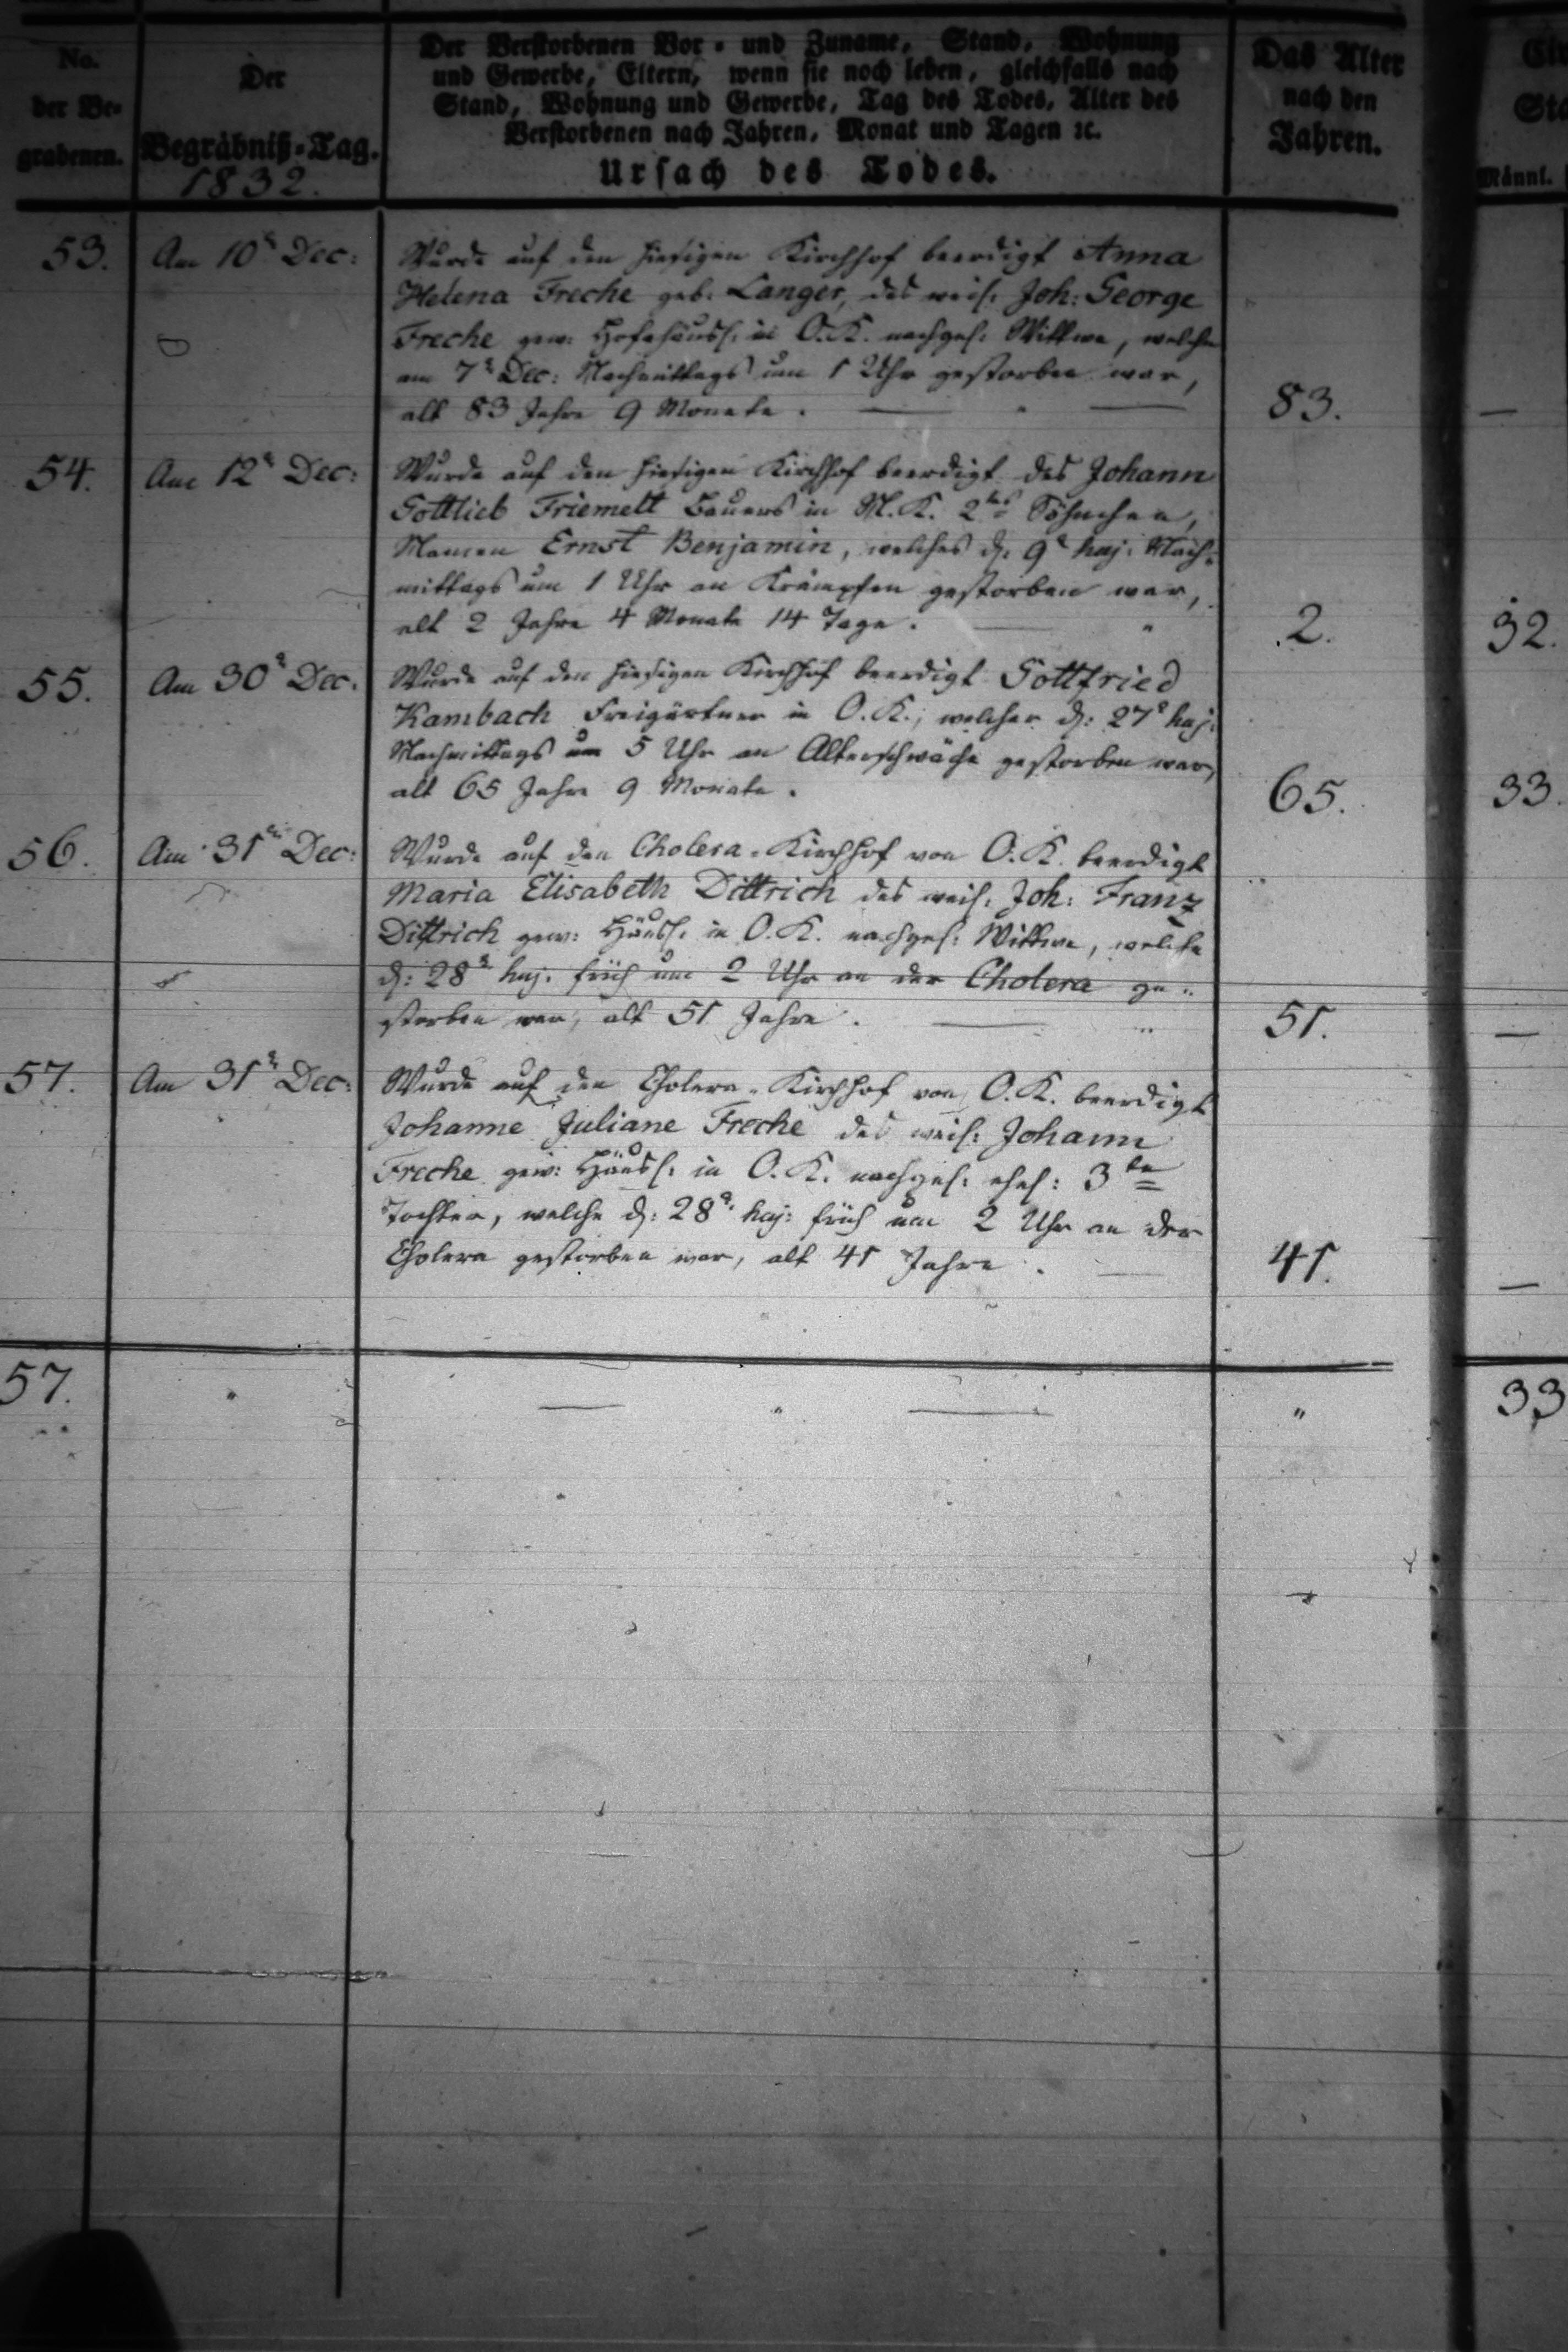 No.
der Be-
grabenen.
Der
Begräbniß-Tag.
1832.
Der Verstorbenen Vor- und Zuname, Stand, Wohnung
und Gewerbe, Eltern, wenn sie noch leben, gleichfalls nach
Stand, Wohnung und Gewerbe, Tag des Todes, Alter des
Verstorbenen nach Jahren, Monat und Tagen ꝛc.
Ursach des Todes.
Das Alter
nach den
Jahren.
Männl.
53. Am 10 Dec: Wurde auf den hiesigen Kirchhof beerdigt Anna
Helena Freche geb: Langer, des weil: Joh: George
Freche gew: Hofehäusl: in O.K. nachgel: Wittwe, welche
am 7 Dec: Nachmittags um 1 Uhr gestorben war,
alt 83 Jahre 9 Monate. — " — 83. —
54. Am 12 Dec: Wurde auf den hiesigen Kirchhof beerdigt des Johann
Gottlieb Friemelt Bauers in M.K. 2tes Söhnchen,
Namen Ernst Benjamin, welches d: 9 huj: Nach-
mittags um 1 Uhr an Krämpfen gestorben war,
alt 2 Jahre 4 Monate 14 Tage. — " 2. 32.
55. Am 30 Dec. Wurde auf den hiesigen Kirchhof beerdigt Gottfried
Kambach Freigärtner in O.K., welcher d: 27 huj:
Nachmittags um 5 Uhr an Alterschwäche gestorben war,
alt 65 Jahre 9 Monate. 65. 33.
56. Am 31 Dec: Wurde auf den Cholera-Kirchhof von O.K. beerdigt
Maria Elisabeth Dittrich des weil: Joh: Franz
Dittrich gew: Häusl: in O.K. nachgel: Wittwe, welche
d: 28 huj. früh um 2 Uhr an der Cholera ge-
storben war, alt 51 Jahre. — " 51. —
57. Am 31 Dec: Wurde auf den Cholera-Kirchhof von O.K. beerdigt
Johanne Juliane Freche des weil: Johann
Freche gew: Häusl: in O.K. nachgel: ehel: 3te
Tochter, welche d: 28 huj: früh um 2 Uhr an der
Cholera gestorben war, alt 41 Jahre. — 41. —
57. " — " — " 33